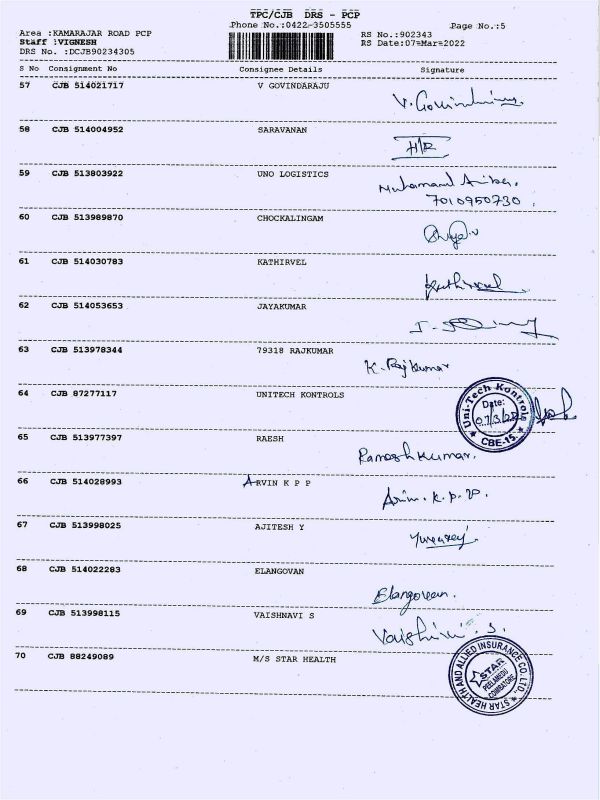 TPC/CJB DRS - PCP
Phone No.:0422-3505555 Page No.:5
Area :KAMARAJAR ROAD PCP RS No.:902343
Staff :VIGNESH RS Date:07=Mar=2022
DRS No. :DCJB90234305
S No Consignment No Consignee Details Signature
57 CJB 514021717 V GOVINDARAJU
V. Govindaraju
58 CJB 514004952 SARAVANAN
59 CJB 513803922 UNO LOGISTICS
Muhamamd
7010950730
60 CJB 513989870 CHOCKALINGAM
61 CJB 514030783 KATHIRVEL
Kathirvel
62 CJB 514053653 JAYAKUMAR
63 CJB 513978344 79318 RAJKUMAR
K. Rajkumar
64 CJB 87277117 UNITECH KONTROLS
Uni-Tech Kontrols
Date:
07/3/22
CBE-15.
65 CJB 513977397 RAESH
Rameshkumar.
66 CJB 514028993 ARVIN K P P
Arvin. K. P. P.
67 CJB 513998025 AJITESH Y
68 CJB 514022283 ELANGOVAN
Elangovan.
69 CJB 513998115 VAISHNAVI S
Vaishnavi. S.
70 CJB 88249089 M/S STAR HEALTH
STAR HEALTH AND ALLIED INSURANCE CO.LTD.,
STAR
PEELAMEDU
COIMBATORE